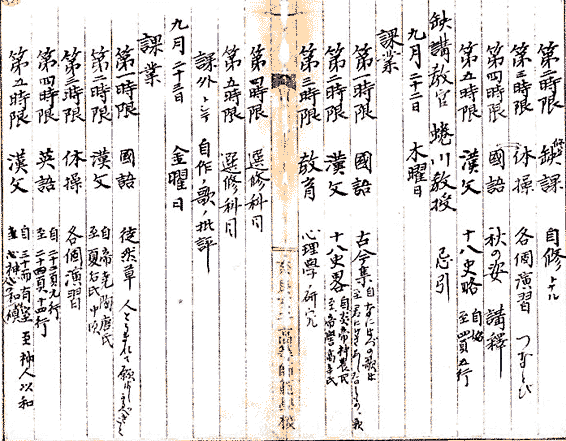 第二時限 缺課 自修スル
第三時限 体操 各個演習 つなとび
第四時限 國語 秋の姿 講釋
第五時限 漢文 十八史略 自始 至四頁五行
缺講教官 蜷川教授 忌引
九月二十二日 木曜日
課業
第一時限 國語 古今集
第二時限 漢文 十八史畧 自炎帝神農氏 至帝嚳高辛氏
第三時限 教育 心理學ノ研究
第四時限 選修科目
第五時限 選修科目
課外トシテ 自作ノ歌ノ批評
九月二十三日 金曜日
課業
第一時限 國語 徒然草
第二時限 漢文 自帝堯陶唐氏 至夏后氏中頃
第三時限 体操 各個演習
第四時限 英語 自二十三頁九行 至二十四頁十四行
第五時限 漢文 自三十而有室 至神人以和